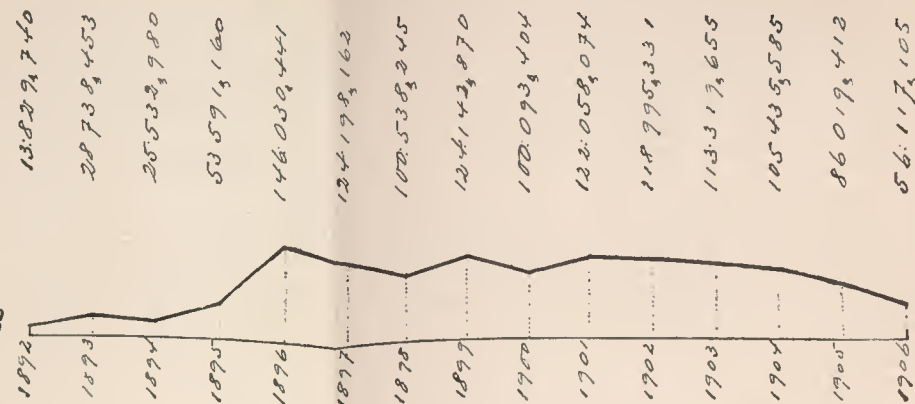 13:829$740
28 738$453
25:532$980
53 591$160
146:030$441
124 198$162
100:538$245
124:142$870
100:093$404
122:058$074
118 995$331
113:319$655
105 435$585
86 019$412
56:117$105
1892
1893
1894
1895
1896
1897
1898
1899
1900
1901
1902
1903
1904
1905
1906